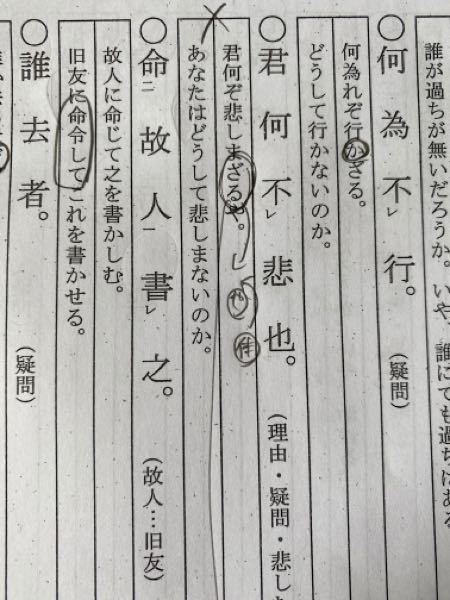 誰が過ちが無いだろうか。いや、誰にでも過ちはある
○何為不レ行。（疑問）
何為れぞ行かざる。
どうして行かないのか。
○君何不レ悲也。（理由・疑問・悲し
君何ぞ悲しまざるや。
あなたはどうして悲しまないのか。
○命二故人一書レ之。（故人…旧友）
故人に命じて之を書かしむ。
旧友に命令してこれを書かせる。
○誰去者。（疑問）